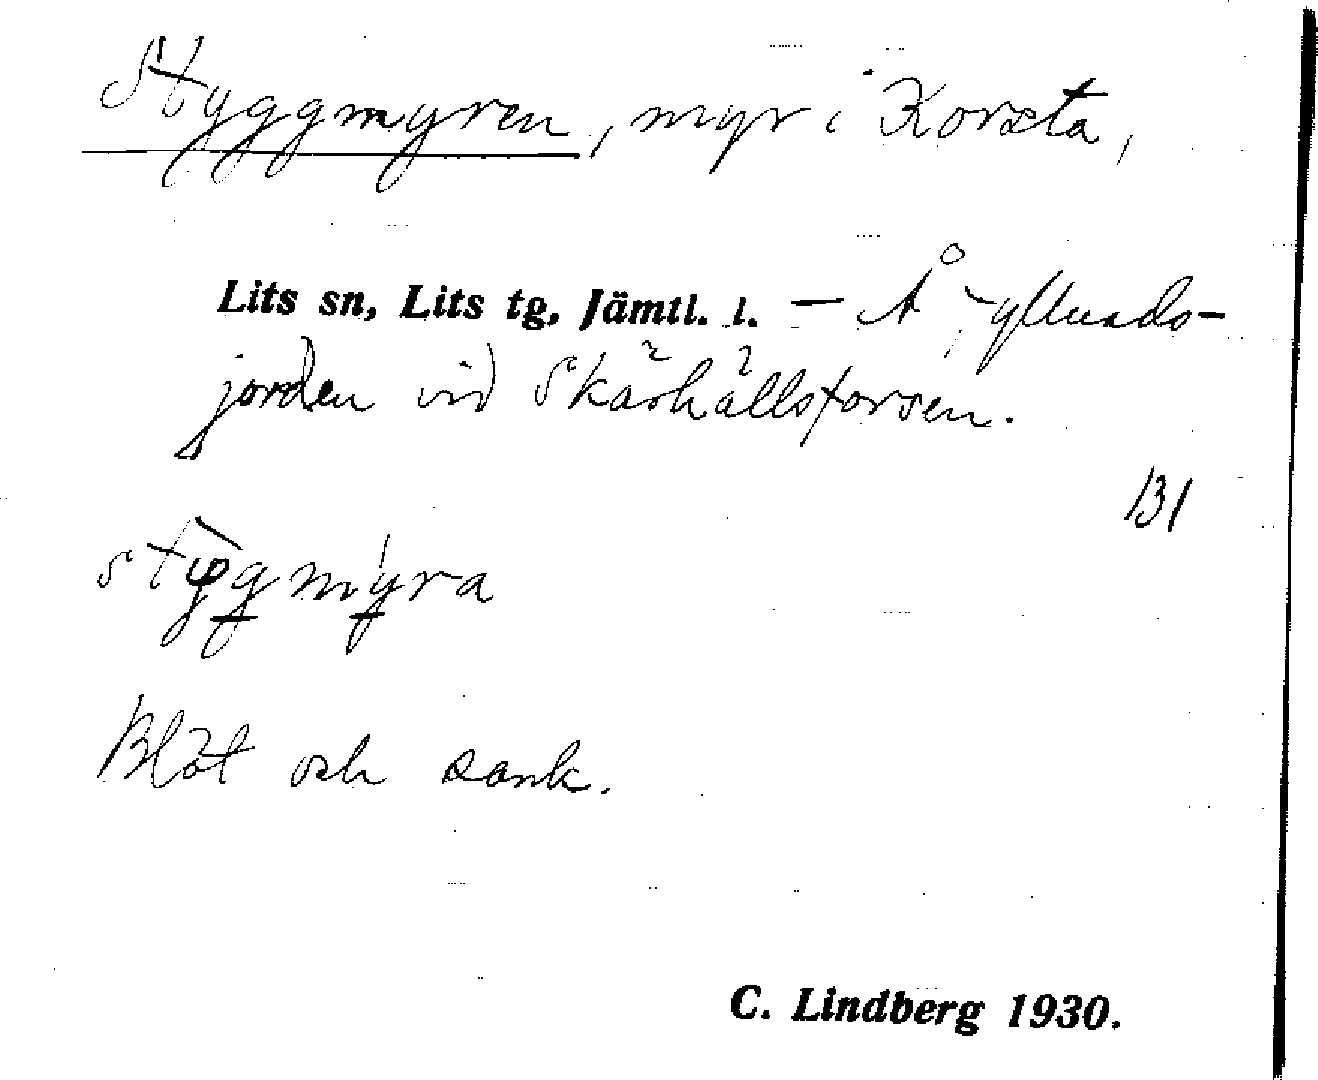 Styggmyren, myr i Korsta,
Lits sn, Lits tg, Jämtl. l. – Å Gyllunds-
jorden vid Skärhällsforsen.
131
stygmyra
Blöt och sank.
C. Lindberg 1930.